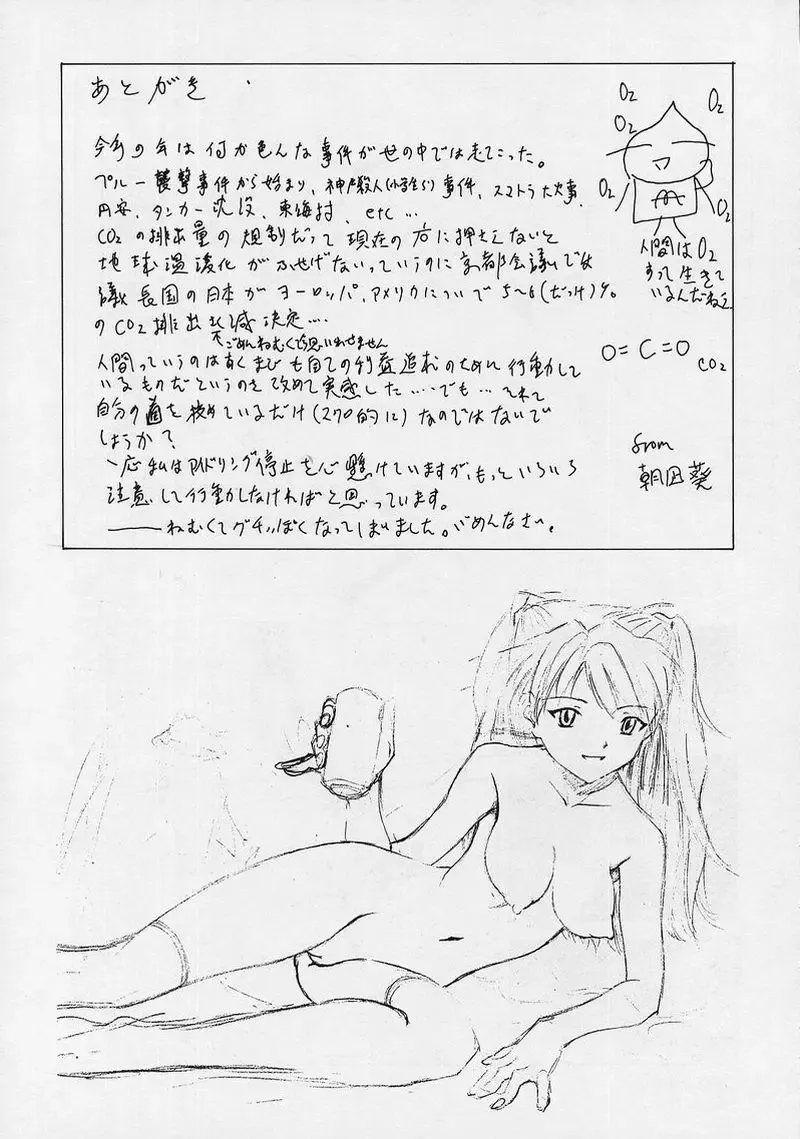 あとがき
今年の年は何か色んな事件が世の中では起こった。
ペルー襲撃事件から始まり、神戸殺人(小学生)事件、スマトラ大火事、
円安、タンカー沈没、東海村、etc…
CO₂の排出量の規制だって現在の方に押さえないと
地球温暖化がふせげないっていうのに京都会議では
議長国の日本がヨーロッパ、アメリカについで5〜6(だっけ)%。
のCO₂排出削減決定…
ごめんねむくて思いだせません
人間っていうのはあくまでも自での利益追求のために行動して
いるものだというのを改めて実感した……でも…それって
自分の首を絞めているだけ(マクロ的に)なのではないで
しょうか?
一応私はアイドリング停止を心懸けていますが、もっといろいろ
注意して行動しなければと思っています。
――ねむくてグチッぽくなってしまいました。ごめんなさい。
O₂
O₂
O₂
O₂
O₂
人間はO₂
すって生きて
いるんだねぇ
O=C=O
CO₂
from
朝凪 葵